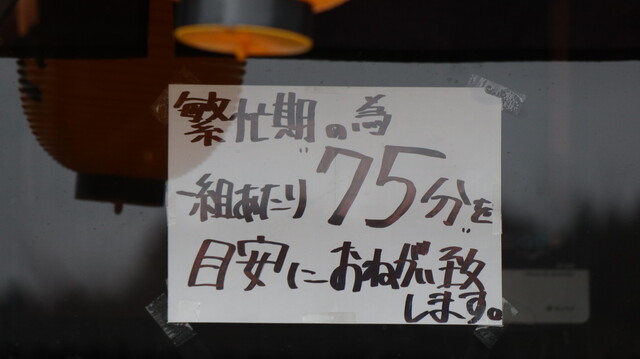 繁忙期の為
一組あたり"75分"を
目安におねがい致
します。